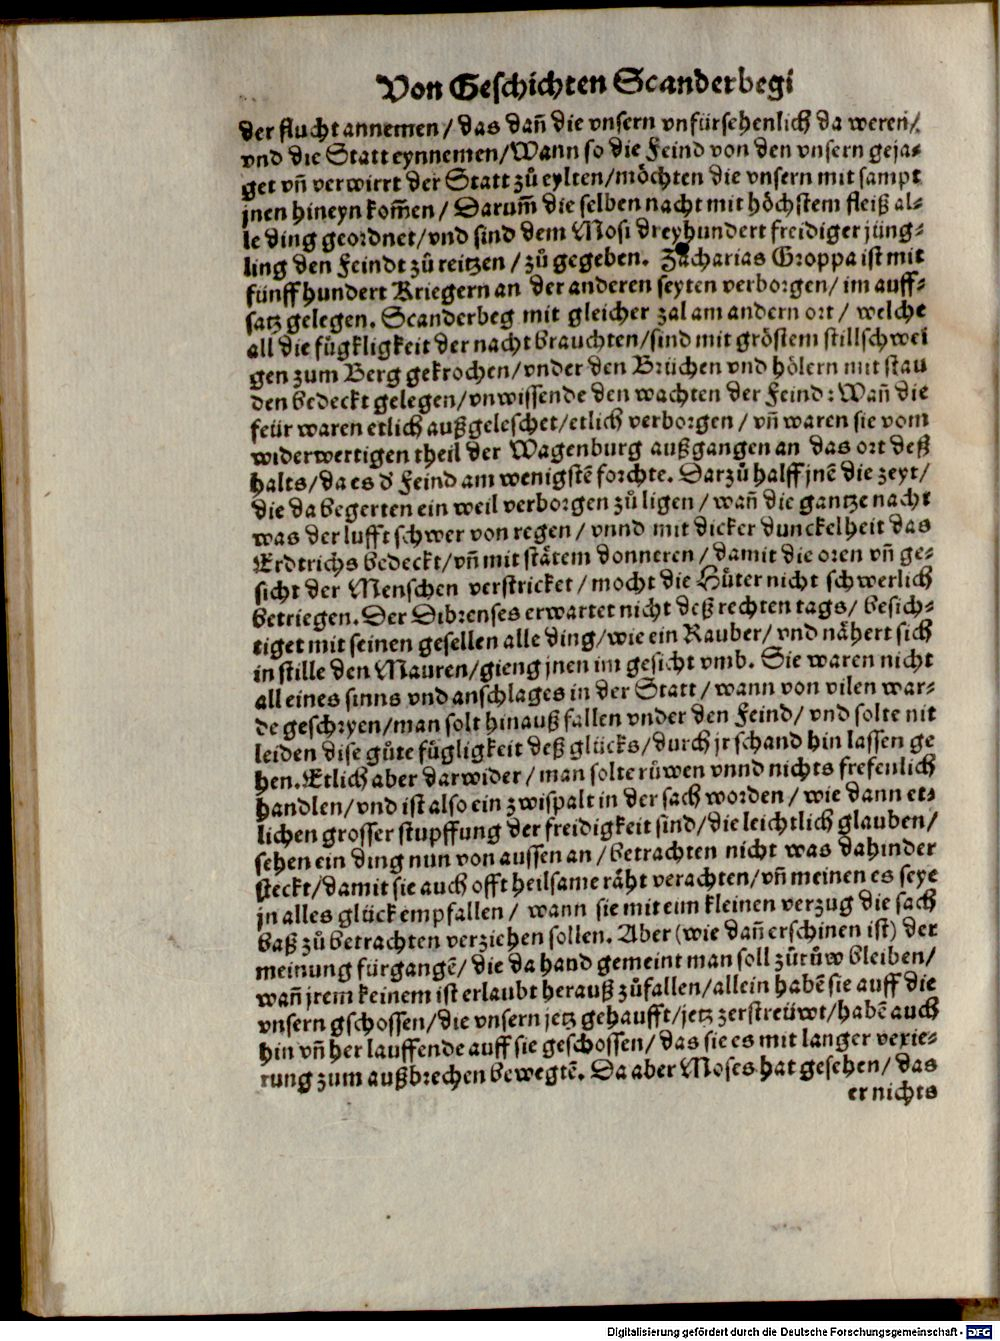 Von Geschichten Scanderbegi
der flucht annemen / das dañ die vnsern vnfürsehenlich da weren /
vnd die Statt eynnemen / Wann so die Feind von den vnsern geja-
get vñ verwirrt der Statt zů eylten / möchten die vnsern mit sampt
jnen hineyn kom̃en / Darum̃ die selben nacht mit höchstem fleiß al-
le ding geordnet / vnd sind dem Mosi dreyhundert freidiger jüng-
ling den Feindt zů reitzen / zů gegeben. Zacharias Groppa ist mit
fünff hundert Kriegern an der anderen seyten verborgen / im auff-
satz gelegen. Scanderbeg mit gleicher zal am andern ort / welche
all die fůgkligkeit der nacht brauchten / sind mit gröstem stillschwei
gen zum Berg gekrochen / vnder den Brüchen vnd hölern mit stau
den bedeckt gelegen / vnwissende den wachten der Feind : Wañ die
feür waren etlich außgeleschet / etlich verborgen / vñ waren sie vom
widerwertigen theil der Wagenburg außgangen an das ort deß
halts / da es d' Feind am wenigstẽ forchte. Darzů halff jnẽ die zeyt /
die da begerten ein weil verborgen zů ligen / wañ die gantze nacht
was der lufft schwer von regen / vnnd mit dicker dunckelheit das
Erdtrichs bedeckt / vñ mit stätem donneren / damit die oren vñ ge-
sicht der Menschen verstricket / mocht die Hüter nicht schwerlich
betriegen. Der Dibrenses erwartet nicht deß rechten tags / besich-
tiget mit seinen gesellen alle ding / wie ein Rauber / vnd nähert sich
in stille den Mauren / gieng jnen im gesicht vmb. Sie waren nicht
all eines sinns vnd anschlages in der Statt / wann von vilen war-
de geschryen / man solt hinauß fallen vnder den Feind / vnd solte nit
leiden dise gůte fůgligkeit deß glücks / durch jr schand hin lassen ge
hen. Etlich aber darwider / man solte růwen vnnd nichts frefenlich
handlen / vnd ist also ein zwispalt in der sach worden / wie dann et-
lichen grosser stupffung der freidigkeit sind / die leichtlich glauben /
sehen ein ding nun von aussen an / betrachten nicht was dahinder
steckt / damit sie auch offt heilsame räht verachten / vñ meinen es seye
jn alles glück empfallen / wann sie mit eim kleinen verzug die sach
baß zů betrachten verziehen sollen. Aber (wie dañ erschinen ist) der
meinung fürgangẽ / die da hand gemeint man soll zůrůw bleiben /
wañ jrem keinem ist erlaubt herauß zůfallen / allein habẽ sie auff die
vnsern gschossen / die vnsern jetz gehaufft / jetz zerstreüwt / habẽ auch
hin vñ her lauffende auff sie geschossen / das sie es mit langer vexie-
rung zum außbrechen bewegtẽ. Da aber Moses hat gesehen / das
er nichts
Digitalisierung gefördert durch die Deutsche Forschungsgemeinschaft - DFG